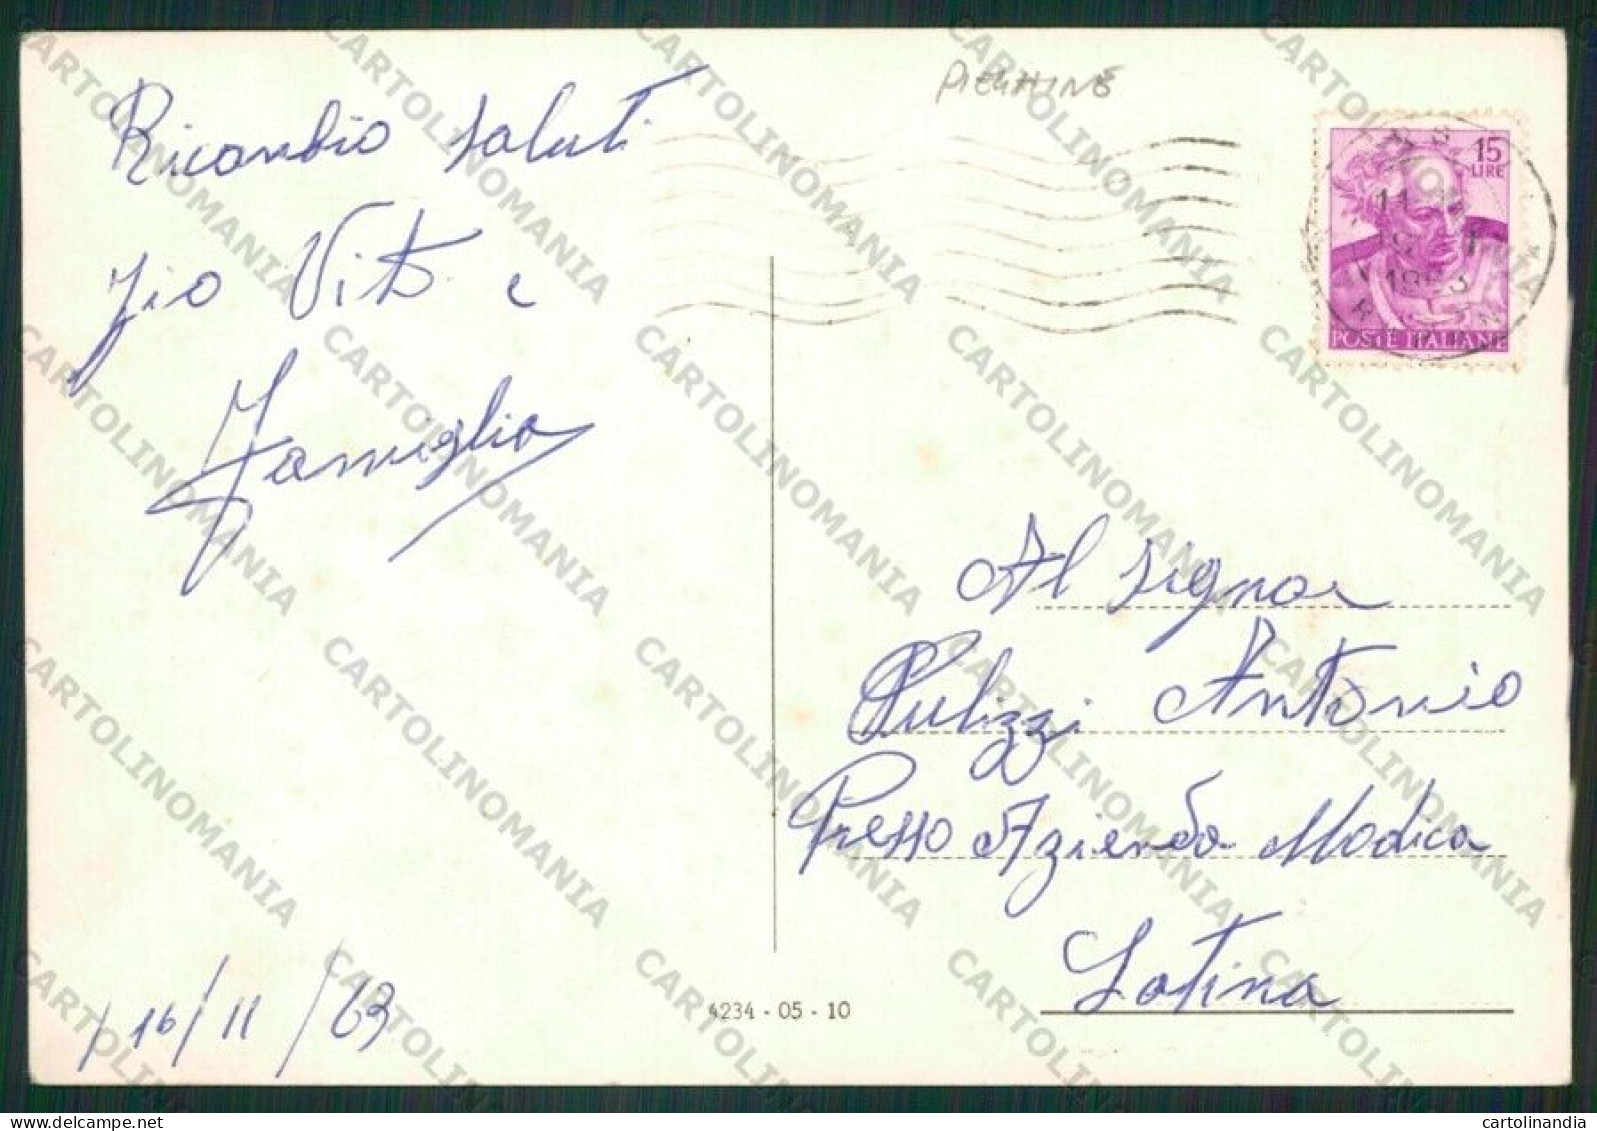 PIEGHINE
15
LIRE
11
1963
POSTE ITALIANE
Ricambio saluti
zio Vito e
Famiglia
Al Signor
Pulizzi Antonio
Presso Azienda Modica
Latina
16/11/63
4234 - 05 - 10
CARTOLINOMANIA
cartolinandia